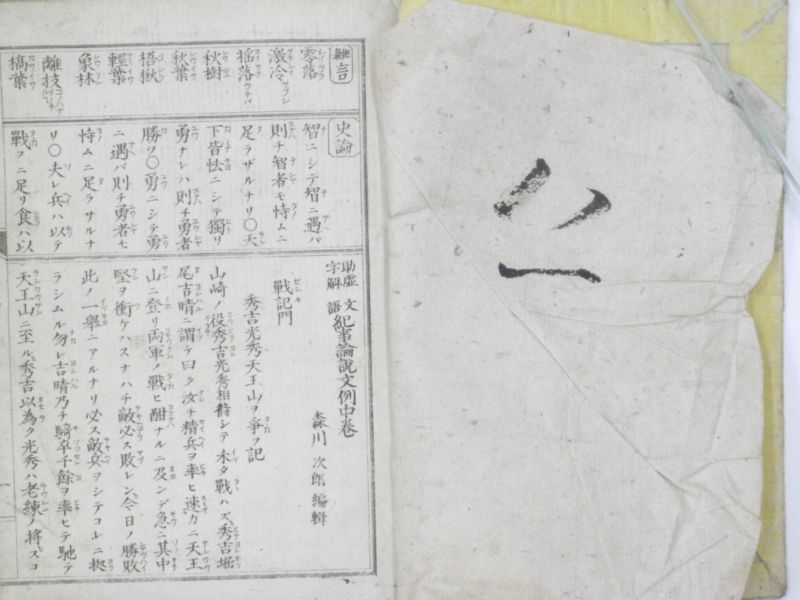 助虚字解文語紀事論説文例中巻
森川次郎編輯
雜言
零落
激冷
揺落
秋樹
秋葉
梧楸
輕葉
象林
離技
槁葉
史論
智ニシテ智ニ遇バ
則チ智者モ恃ムニ
足ラザルナリ〇天
下皆怯ニシテ獨リ
勇ナレハ則チ勇者
勝ツ〇勇ニシテ勇
ニ遇バ則チ勇者モ
恃ムニ足ラサルナ
リ〇夫レ兵ハ以テ
戰フニ足リ食ハ以
戰記門
秀吉光秀天王山ヲ爭フ記
山崎ノ役秀吉光秀相持シテ未タ戰ハズ秀吉堀
尾吉晴ニ謂テ曰ク汝チ精兵ヲ率ヒ速カニ天王
山ニ登リ両軍ノ戰ヒ酣ナルニ及ンデ急ニ其中
堅ヲ衝ケハスナハチ敵必ス敗レン今日ノ勝敗
此ノ一舉ニアルナリ必ス敵兵ヲシテコレニ拠
ラシムル勿レ吉晴乃チ騎卒千餘ヲ率ヒテ馳テ
天王山ニ至ル秀吉以為ク光秀ハ老練ノ將ズコ